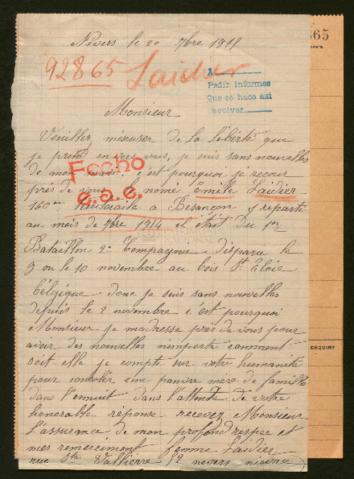 Nevers le 20 7bre 1915
92865
Laidier
A
Pedir informes
Que se haco así
Monsieur
Veuillez mexcuser de la liberté que
je prend je suis sans nouvelles
de mon c est pourquoi je recour
près de vous nomé Emile Laidier
Fecho
160me à Besançon reparti
e.a.e.
au mois de 7bre 1914 il etait du 1er
Bataillon 2e Compagnie disparu le
9 ou le 10 novembre au bois St Eloie
Belgique donc je suis sans nouvelles
depuis le 2 novembre c est pourquoi
Monsieur je madresse près de vous pour
avoir des nouvelles nimporte comment
soit elle je compte sur votre humanité
pour consoler une pauvre mere de famille
dans l'attente de votre
honorable réponse recevez Monsieur
L'assurance de mon profond respec et
mes remerciment femme Laidier
rue Ste Vallierre 12 nevers nievre
65
ENQUIRY